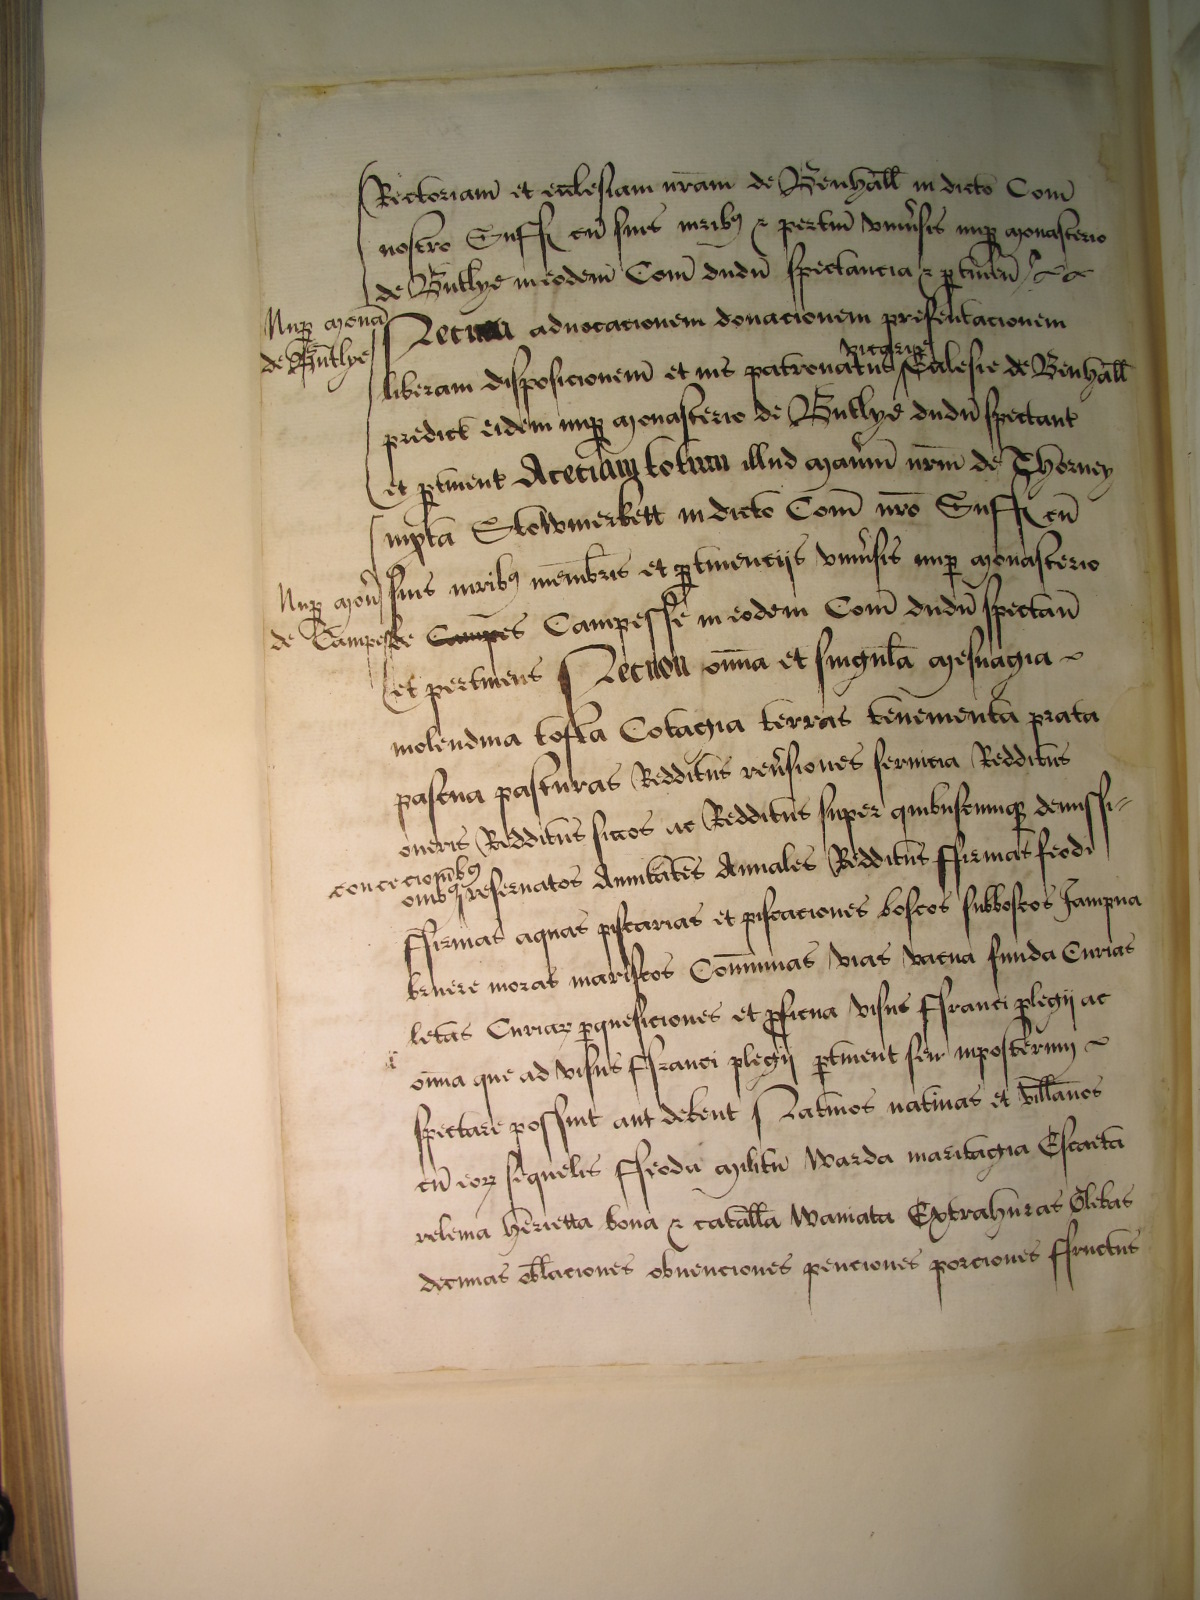 Rectoriam et eccl̄esiam nr̄am de Benhall̄ in dicto Com̄
nostro Suff cū suis iurib9 & pertin̄ vniu̓sis nup monasterio
de Butlye in eodem̄ Com̄ dudū spectancia & ptineñ
Nup mona
de Butlye
Necnon aduocacionem donacionem presentacionem
liberam disposicionem̄ et ius patronatus vicarie Ecclesie de Benhall̄
predict eidem nup monasterio de Butlye dudū spectant
et ptinent Aceciam totum illud Man̓iū nr̄m de Thorney
iuxta Stowmerkett in dicto Com̄ nr̄o Suff cū
suis iurib9 membris et ptinencijs vniu̓sis nup monasterio
Nup mon̄
de Campes
de Campes Campesse in eodem Com̄ dudū spectan̄
et pertinens Necnon om̄ia et singula mesuagia
molendina tofta Cotagia terras tenementa prata
pascua pasturas Redditus reu̓siones seruicia Redditus
oneris Redditus siccos ac Redditus super quibuscumq dimissi=
concecionib9
onib9 reseruatos Annitates Annales Redditus ffirmas feodi
ffirmas aquas piscarias et piscaciones boscos subboscos Jampna
bruere moras mariscos Com̄unias vias vacua funda Curias
letas Curiaꝝ pquesiciones et pficua visus ffranci plegij ac
om̄ia que ad visus ffranci plegij ptinent seu inposterum
spectare possint aut debent Natiuos natiuas et vill̄anos
cū eoꝝ sequelis ffeoda militū Warda maritagia Escaeta
releuia herietta bona & catall̄a Wauiata Extrahuras Glebas
decimas obl̄aciones obuenciones penciones porciones ffructus